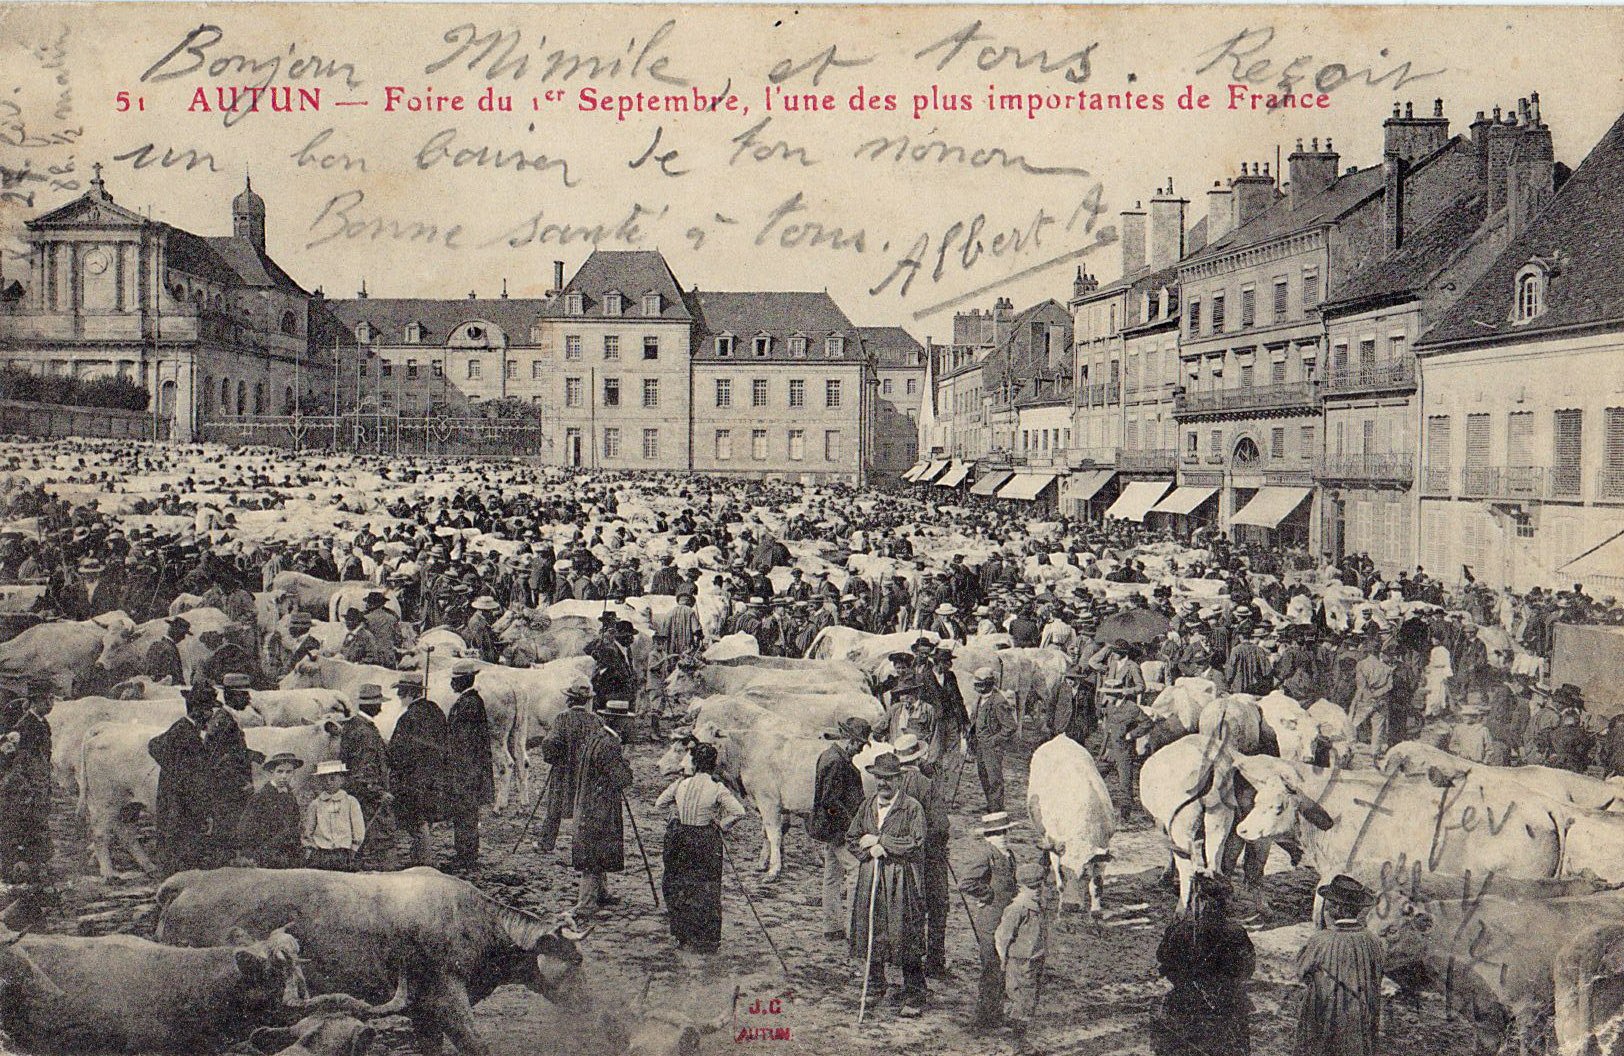 Bonjour Mimile, et tous. Reçoit
51 AUTUN — Foire du 1er Septembre, l'une des plus importantes de France
un bon baiser de ton nonon
Bonne santé à tous.
Albert A
27 fév.
8h. 1/2 matin
R F
27 fév.
8h 1/2
J.C
AUTUN